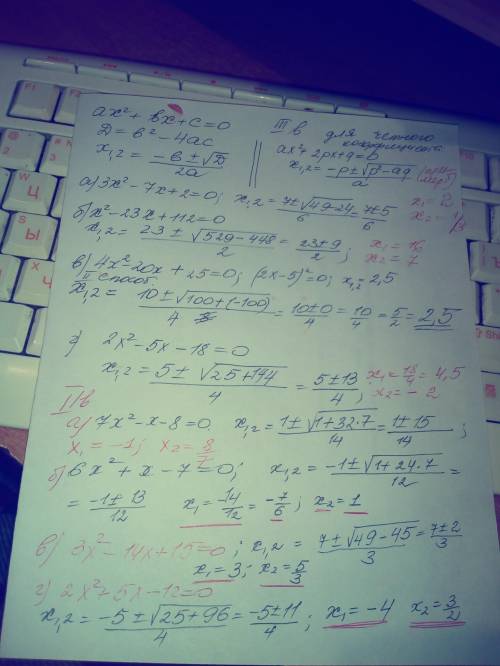 ax² + bx + c = 0
D = b² - 4ac
x₁,₂ = (-b ± √D)/2a
III в для четного коэффициента
ax² + 2px + q = 0
x₁,₂ = (-p ± √(p² - aq))/a
а) 3x² - 7x + 2 = 0; x₁,₂ = (7 ± √(49-24))/6 = (7±5)/6 x₁ = 2 x₂ = 1/3
б) x² - 23x + 112 = 0
x₁,₂ = (23 ± √(529-448))/2 = (23±9)/2; x₁ = 16 x₂ = 7
в) 4x² - 20x + 25 = 0; (2x-5)² = 0; x₁,₂ = 2,5
II способ
x₁,₂ = (10 ± √(100+(-100)))/4 = (10±0)/4 = 10/4 = 5/2 = 2,5
г) 2x² - 5x - 18 = 0
x₁,₂ = (5 ± √(25+144))/4 = (5±13)/4; x₁ = 18/4 = 4,5 x₂ = -2
I/в
а) 7x² - x - 8 = 0 x₁,₂ = (1 ± √(1+32·7))/14 = (1±15)/14;
x₁ = -1; x₂ = 8/7
б) 6x² + x - 7 = 0; x₁,₂ = (-1 ± √(1+24·7))/12 =
= (-1±13)/12 x₁ = -14/12 = -7/6; x₂ = 1
в) 3x² - 14x + 15 = 0; x₁,₂ = (7 ± √(49-45))/3 = (7±2)/3
x₁ = 3; x₂ = 5/3
г) 2x² + 5x - 12 = 0
x₁,₂ = (-5 ± √(25+96))/4 = (-5±11)/4; x₁ = -4 x₂ = 3/2